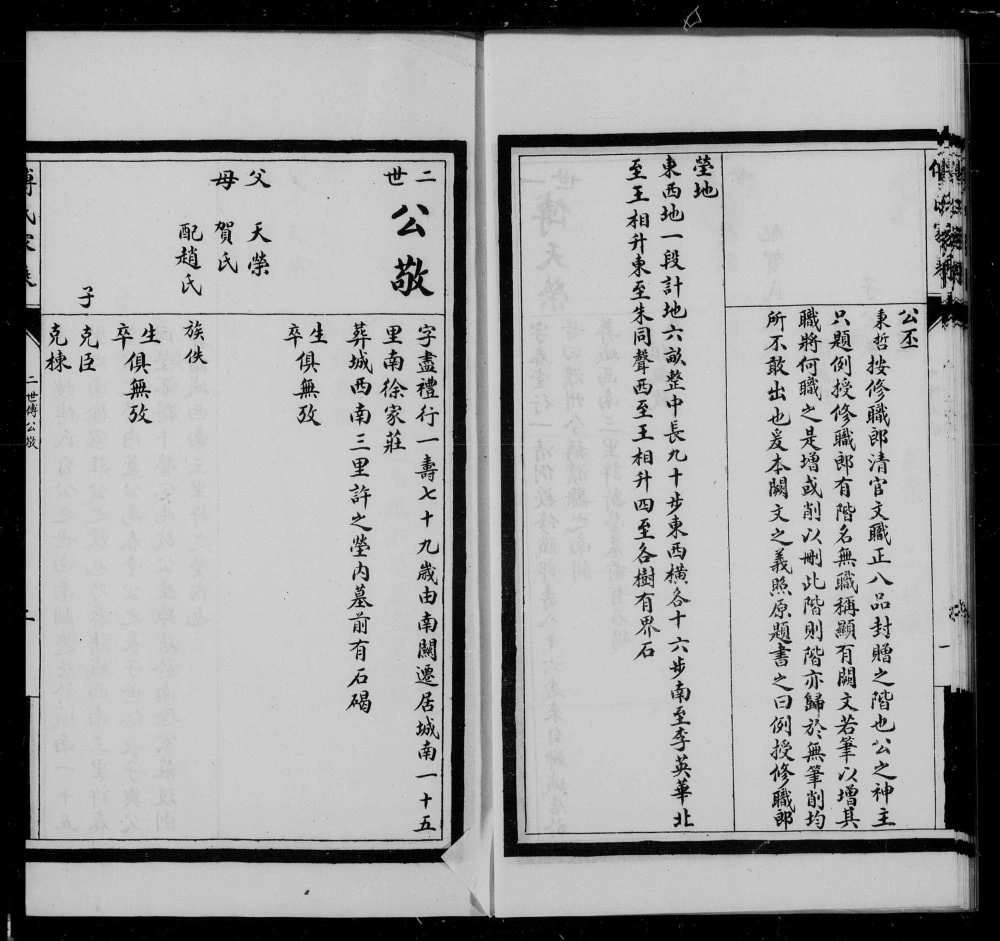 公丕
東哲按修職郎清官文職正八品封贈之階也公之神主
只題例授修職郎有階名無職稱顯有闕文若筆以增其
職將何職之是增或削以刪此階則階亦歸於無筆削均
所不敢出也爰本闕文之義照原題書之曰例授修職郎
塋地
東西地一段計地六畝整中長九十步東西橫各十六步南至李英華北
至王相升東至朱同聲西至王相升四至各樹有界石
二世
公敬
字盡禮行一壽七十九歲由南關遷居城南一十五
里南徐家莊
葬城西南三里許之塋內墓前有石碣
父 天榮
母 賀氏
生卒俱無攷
配趙氏
族佚
生卒俱無攷
子
克臣
克棟
二世傅公敬